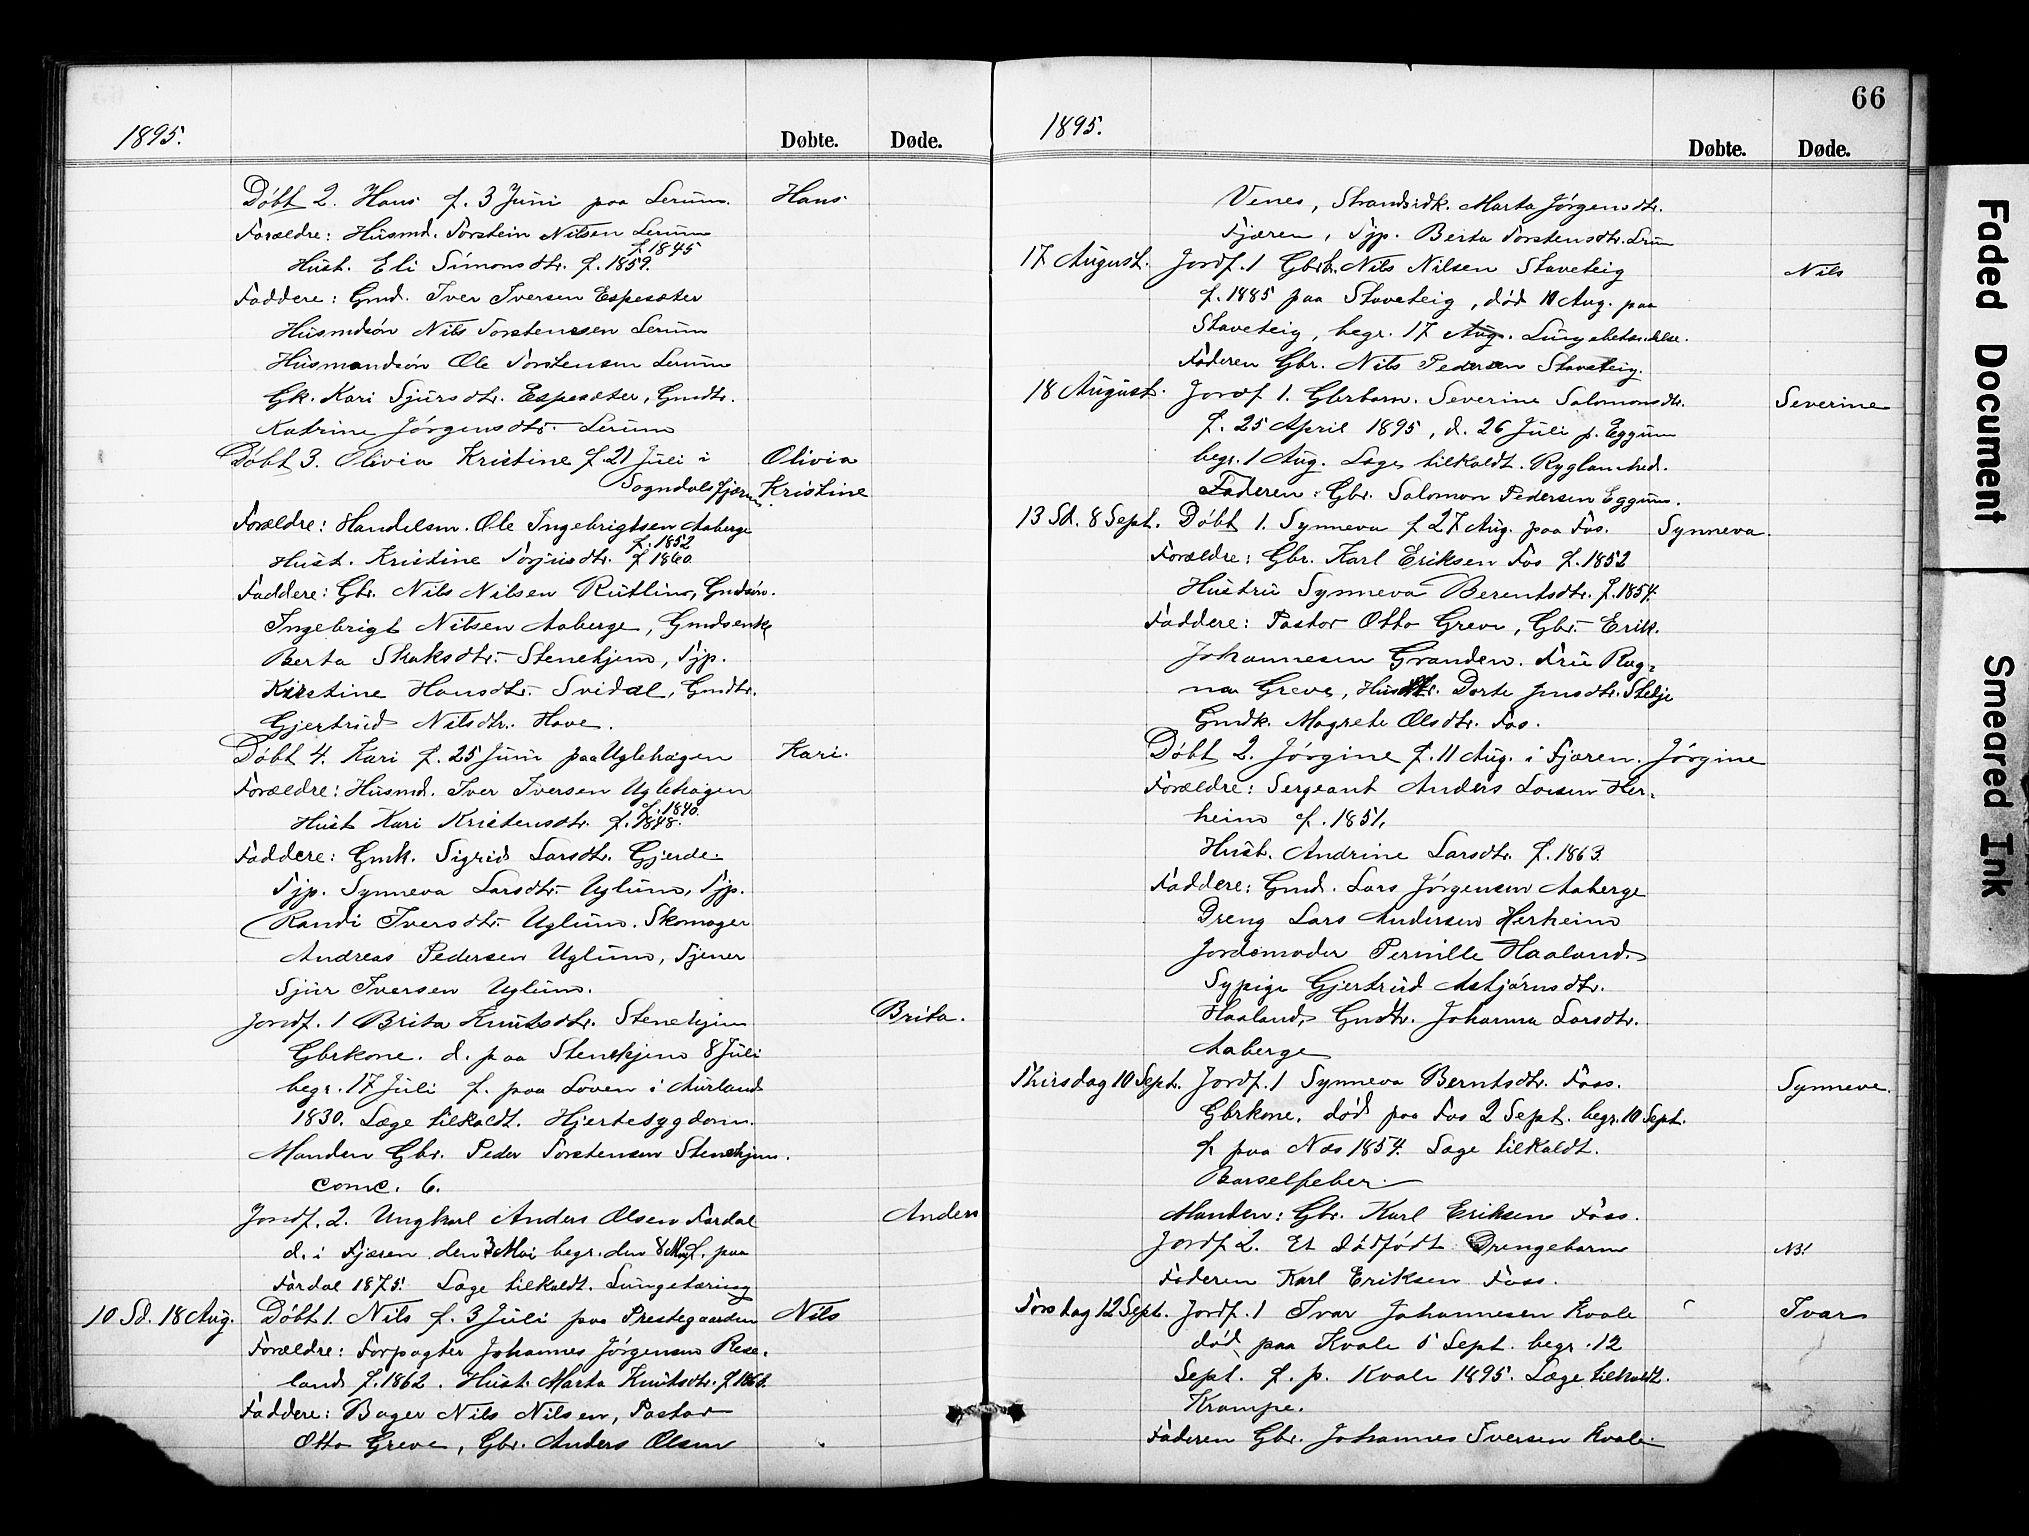 1895.
Døbte.
Døde.
Døbt 2. Hans f. 3 Juni paa Lerum.
Hans
Forældre: Husmd. Torstein Nilsen Lerum
f. 1845
Hust. Eli Simonsdtr. f. 1859.
Faddere: Gmd. Iver Iversen Espesæter
Husmdsøn Nils Torstensen Lerum
Husmandsøn Ole Torstensen Lerum
Gk. Kari Sjursdtr. Espesæter, Gmdtr.
Katrine Jørgensdtr. Lerum
Døbt 3. Olivia Kristine f. 21 Juli i
Olivia
Sogndalsfjæren.
Kristine
Forældre: Handelsm. Ole Ingebrigtsen Aaberge
f. 1852
Hust. Kristine Torjusdtr. f 1860.
Faddere: Gbr. Nils Nilsen Rutlin, Gmdsøn.
Ingebrigt Nilsen Aaberge, Gmdsenke
Berta Skaksdtr. Stenehjem, Tjp.
Kirstine Hansdtr. Svidal, Gmdtr.
Gjertrud Nilsdtr. Hove.
Døbt 4. Kari f. 25 Juni paa Uglehagen
Kari.
Forældre: Husmd. Iver Iversen Uglehagen
f. 1840.
Hust Kari Kristensdtr. f. 1848.
Faddere: Gmk. Sigrid Larsdtr. Gjerde.
Tjp. Synneva Larsdtr. Uglum, Tjp.
Randi Iversdtr. Uglum. Skomager
Andreas Pedersen Uglum, Tjener
Sjur Iversen Uglum.
Jordf. 1 Brita Knutsdtr. Stenehjem
Brita.
Gbrkone. d. paa Stenehjem 8 Juli
begr. 17 Juli f. paa Loven i Aurland
1830. Læge tilkaldt. Hjertesygdom.
Manden Gbr. Peder Torstensen Stenehjem.
conc. 6.
Jordf. 2. Ungkarl Anders Olsen Fardal
Anders
d. i Fjæren den 3 Mai begr. den 8 Mai f. paa
Fardal 1875. Læge tilkaldt. Lungetæring
10 Sd. 18 Aug.
Døbt 1. Nils f. 3 Juli paa Prestegaarden
Nils
Forældre: Forpagter Johannes Jørgensen Rese-
land f. 1862. Hust. Marta Knutsdtr. f 1868.
Faddere: Bager Nils Nilsen, Pastor
Otto Greve, Gbr. Anders Olsen
66
1895.
Døbte.
Døde.
Venes, Strandsidk. Marta Jørgensdtr.
Fjæren, Tjp. Berta Torstensdtr. Lrum
17 August.
Jordf. 1 Gbrb. Nils Nilsen Staveteig
Nils
f. 1885 paa Staveteig, død 10 Aug. paa
Staveteig, begr. 17 Aug. Lungebetændelse.
Faderen Gbr. Nils Pedersen Staveteig.
18 August.
Jordf 1. Gbrbarn. Severine Salomonsdtr.
Severine
f. 25 April 1895, d. 26 Juli p. Eggum
begr. 1 Aug. Læge tilkaldt. Ryglamhed.
Faderen: Gbr. Salomon Pedersen Eggum.
13 Sd. 8 Sept.
Døbt 1. Synneva f 27 Aug. paa Fos.
Synneva.
Forældre: Gbr. Karl Eriksen Fos f. 1852
Hustru Synneva Berentsdtr. f. 1854.
Faddere: Pastor Otto Greve, Gbr. Erik.
Johannesen Granden. Fru Rag-
na Greve, Dorte Jensdtr. Stedje
Gmdk. Magrete Olsdtr. Fos.
Døbt 2. Jørgine f. 11 Aug. i Fjæren.
Jørgine
Forældre: Sergeant Anders Larsen Her-
heim f. 1851.
Hust. Andrine Larsdtr. f. 1863.
Faddere: Gmd. Lars Jørgensen Aaberge
Dreng Lars Andersen Herheim
Jordemoder Pernille Haaland.
Sypige Gjertrud Asbjørnsdtr.
Haaland, Gmdtr. Johanna Larsdtr.
Aaberge
Thirsdag 10 Sept.
Jordf. 1 Synneva Berntsdtr. Foss.
Synneve.
Gbrkone, død paa Fos 2 Sept. begr. 10 Sept.
f. paa Næs 1854. Læge tilkaldt.
Barselfeber.
Manden: Gbr. Karl Eriksen Foss.
Jordf 2. Et dødfødt Drengebarn
NB!
Faderen Karl Eriksen Foss.
Torsdag 12 Sept.
Jordf. 1 Ivar Johannesen Kvale
Ivar
død paa Kvale 5 Sept. begr. 12
Sept. f. p. Kvale 1895. Læge tilkaldt.
Krampe.
Faderen Gbr. Johannes Iversen Kvale.
Faded Document
Smeared Ink